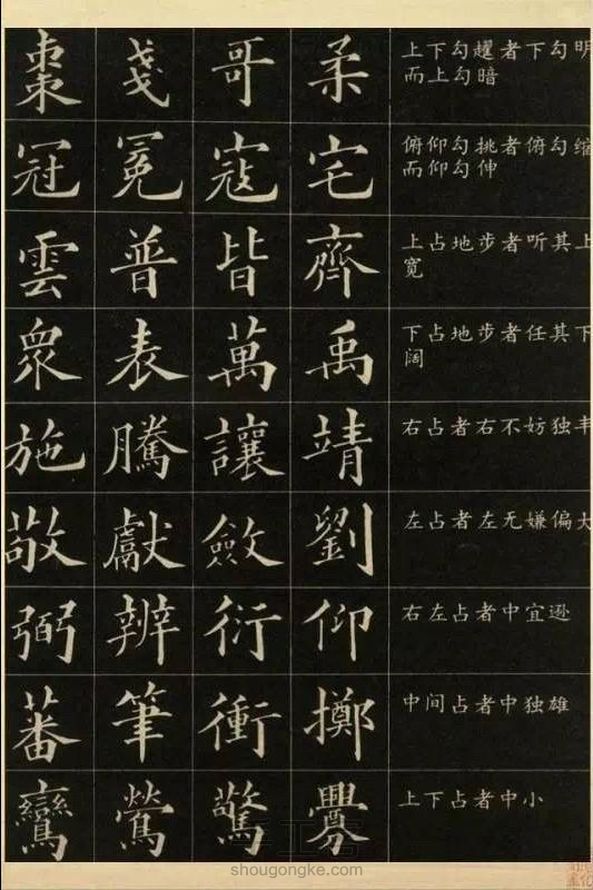 棗 戔 哥 柔 上下勾趯者下勾明
而上勾暗
冠 冕 寇 宅 俯仰勾挑者俯勾缩
而仰勾伸
雲 普 皆 齊 上占地步者听其上
宽
衆 表 萬 禹 下占地步者任其下
阔
施 騰 讓 靖 右占者右不妨独丰
敬 獻 斂 劉 左占者左无嫌偏大
弼 辨 衍 仰 右左占者中宜逊
蕃 筆 衝 擲 中间占者中独雄
鸞 鶯 驚 上下占者中小
shougongke.com